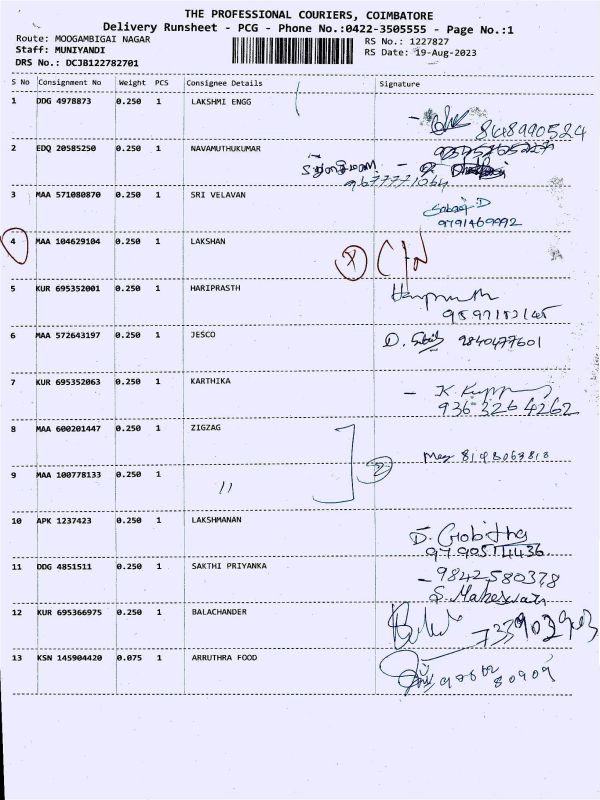 THE PROFESSIONAL COURIERS, COIMBATORE
Delivery Runsheet - PCG - Phone No.:0422-3505555 - Page No.:1
Route: MOOGAMBIGAI NAGAR
RS No.: 1227827
Staff: MUNIYANDI
RS Date: 19-Aug-2023
DRS No.: DCJB122782701
S No Consignment No Weight PCS Consignee Details Signature
1 DDG 4978873 0.250 1 LAKSHMI ENGG
848990524
2 EDQ 20585250 0.250 1 NAVAMUTHUKUMAR
9677771064
3 MAA 571080870 0.250 1 SRI VELAVAN
D
9791469992
4 MAA 104629104 0.250 1 LAKSHAN
5 KUR 695352001 0.250 1 HARIPRASTH
6 MAA 572643197 0.250 1 JESCO D. 9840477601
7 KUR 695352063 0.250 1 KARTHIKA
- K.
936 326 4262
8 MAA 600201447 0.250 1 ZIGZAG
2
9 MAA 100778133 0.250 1 "
10 APK 1237423 0.250 1 LAKSHMANAN
11 DDG 4851511 0.250 1 SAKTHI PRIYANKA
- 9842580378
S. Maheswari
12 KUR 695366975 0.250 1 BALACHANDER
13 KSN 145904420 0.075 1 ARRUTHRA FOOD